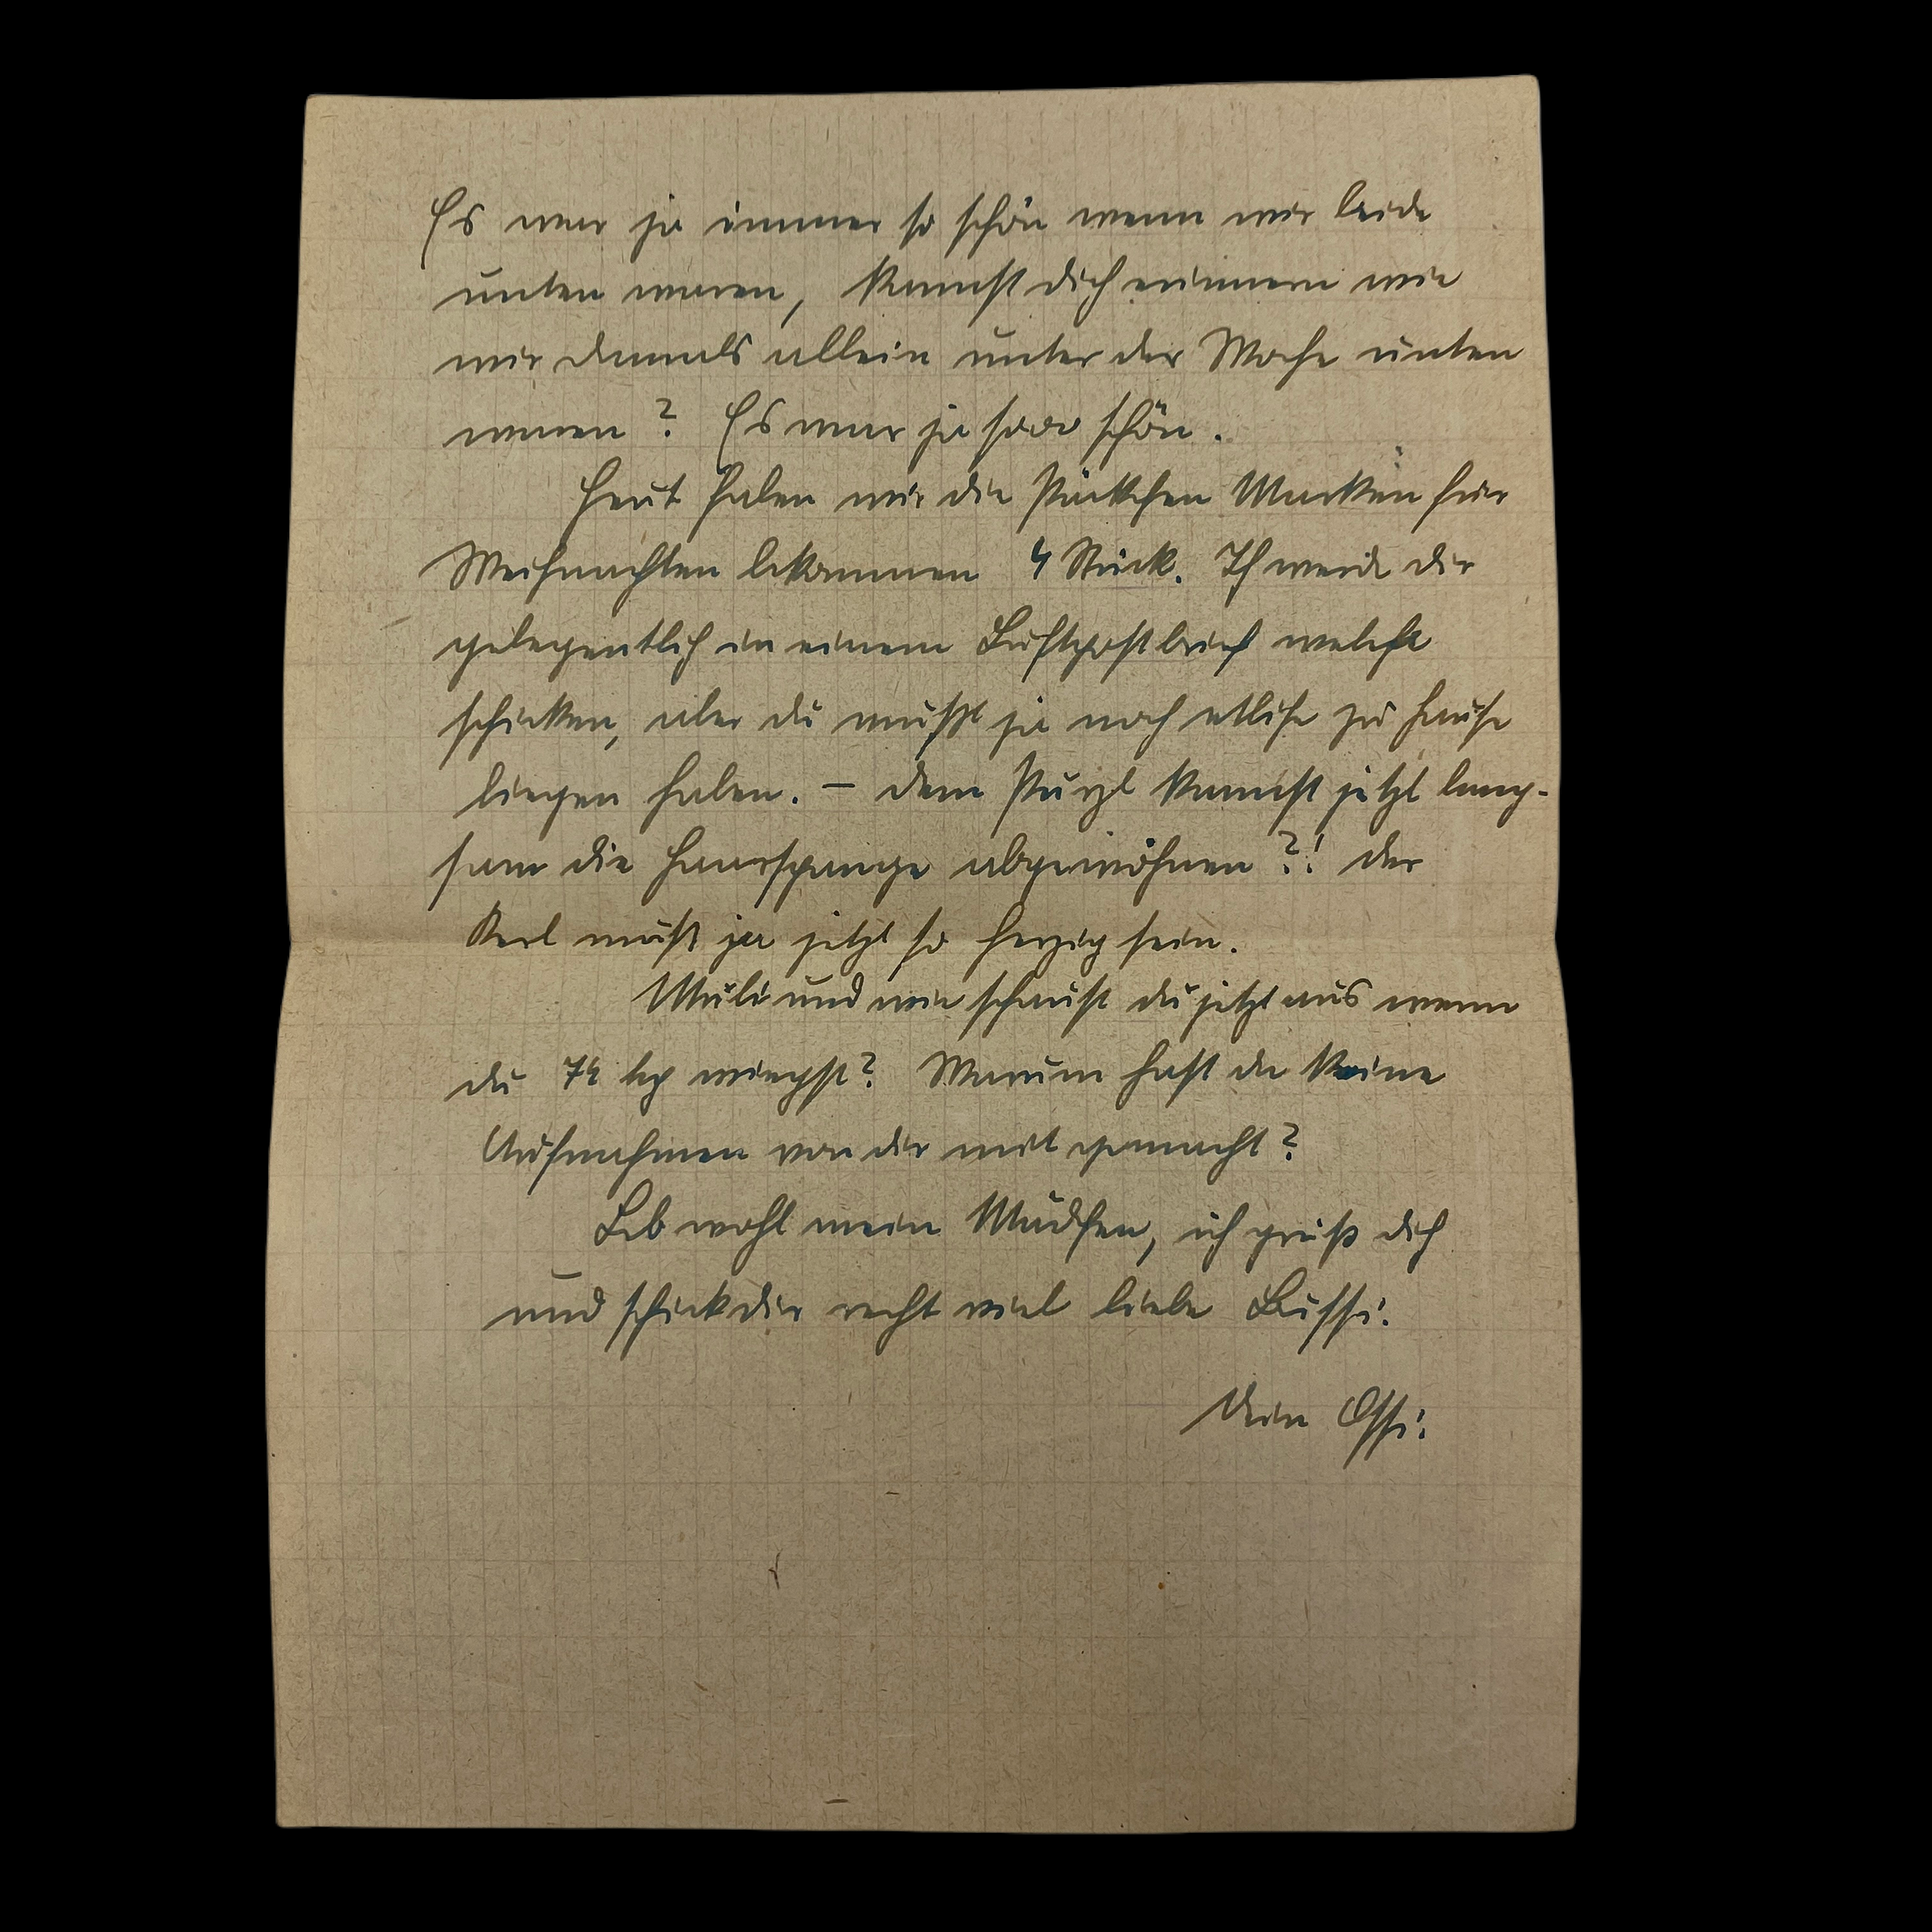 Es war ja immer so schön wenn wir beide
unten waren, kannst dich erinnern wie
wir damals allein unter der Woche unten
waren? Es war ja sooo schön.
Heut haben wir die Päckchen Marken für
Weihnachten bekommen 4 Stück. Ich werde dir
gelegentlich in einem Luftpostbrief welche
schicken, aber du mußt ja noch etliche zu Hause
liegen haben. – Dem Purzl kannst jetzt lang-
sam die Haarspange abgewöhnen?! Der
Kerl muß ja jetzt so herzig sein.
Muli und wie schaust du jetzt aus wenn
du 74 kg wiegst? Warum hast du keine
Aufnahmen von dir mit gemacht?
Leb wohl mein Mädchen, ich grüß dich
und schick dir recht viel liebe Bussi.
Dein Ossi.